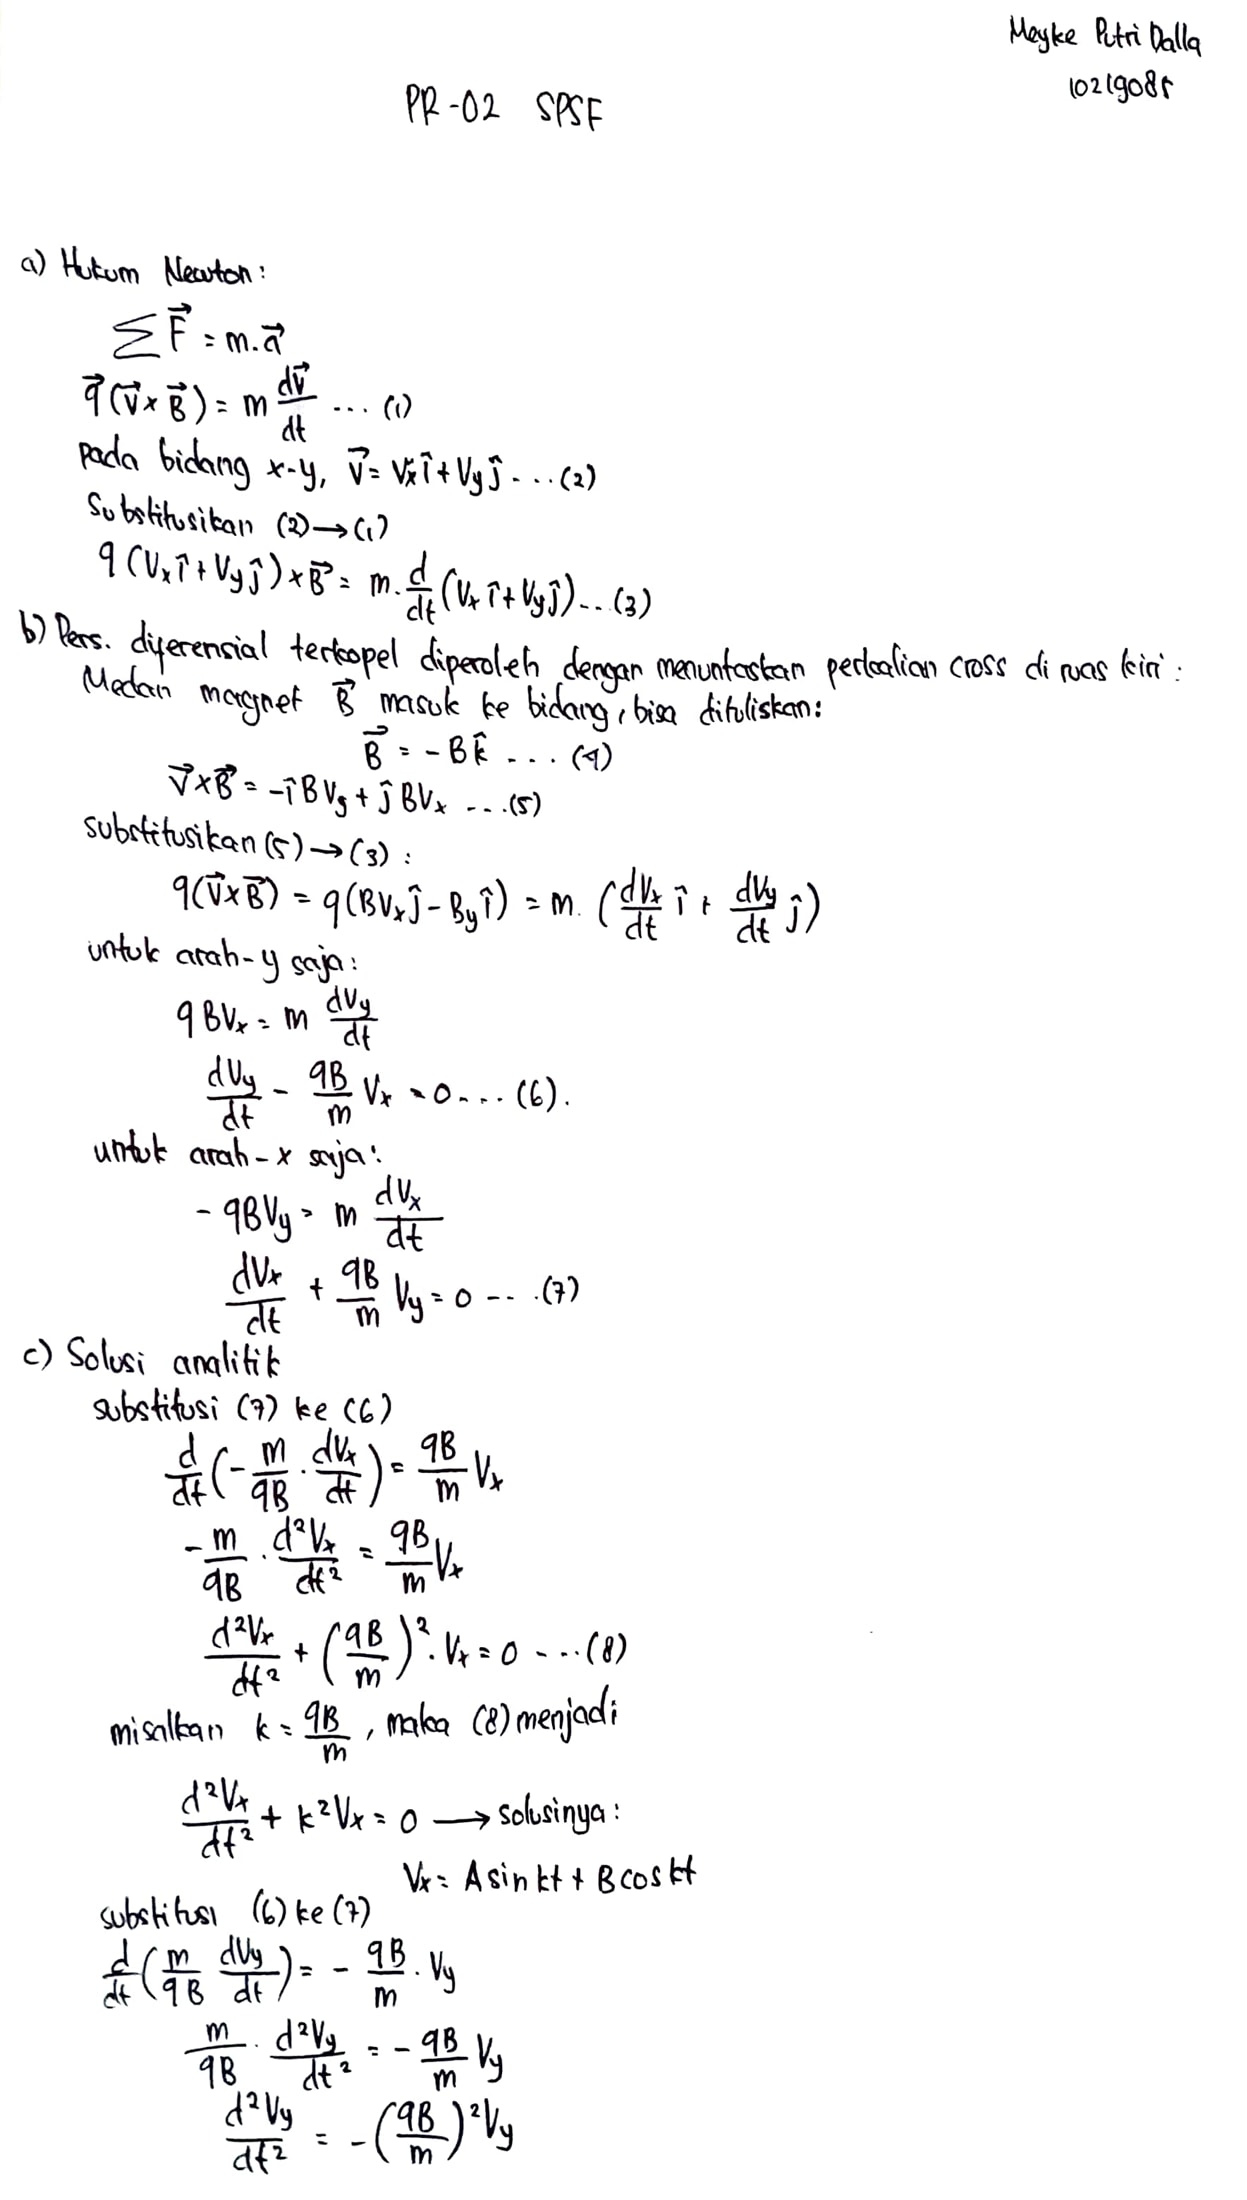 Meyke Putri Dalla
10219085
PR-02 SPSF
a) Hukum Newton:
∑F⃗ = m.a⃗
q⃗(v⃗×B⃗) = m dv⃗/dt ... (1)
pada bidang x-y, v⃗ = Vxî + Vyĵ ... (2)
Substitusikan (2)→(1)
q(Vxî + Vyĵ)×B⃗ = m. d/dt (Vxî + Vyĵ)... (3)
b) Pers. diferensial terkopel diperoleh dengan menuntaskan perkalian cross di ruas kiri:
Medan magnet B⃗ masuk ke bidang, bisa dituliskan:
B⃗ = -Bk̂ .... (4)
V⃗×B⃗ = -îBVy + ĵBVx ....(5)
substitusikan (5)→(3):
q(V⃗×B⃗) = q(BVxĵ - Byî) = m. (dVx/dt î + dVy/dt ĵ)
untuk arah-y saja:
qBVx = m dVy/dt
dVy/dt - qB/m Vx = 0.... (6).
untuk arah-x saja:
- qBVy = m dVx/dt
dVx/dt + qB/m Vy = 0 ....(7)
c) Solusi analitik
substitusi (7) ke (6)
d/dt (-m/qB . dVx/dt) = qB/m Vx
-m/qB . d²Vx/dt² = qB/m Vx
d²Vx/dt² + (qB/m)². Vx = 0 ....(8)
misalkan k = qB/m, maka (8) menjadi
d²Vx/dt² + k²Vx = 0 → solusinya:
Vx = A sin kt + B cos kt
substitusi (6) ke (7)
d/dt (m/qB dVy/dt) = - qB/m . Vy
m/qB . d²Vy/dt² = - qB/m Vy
d²Vy/dt² = -(qB/m)²Vy